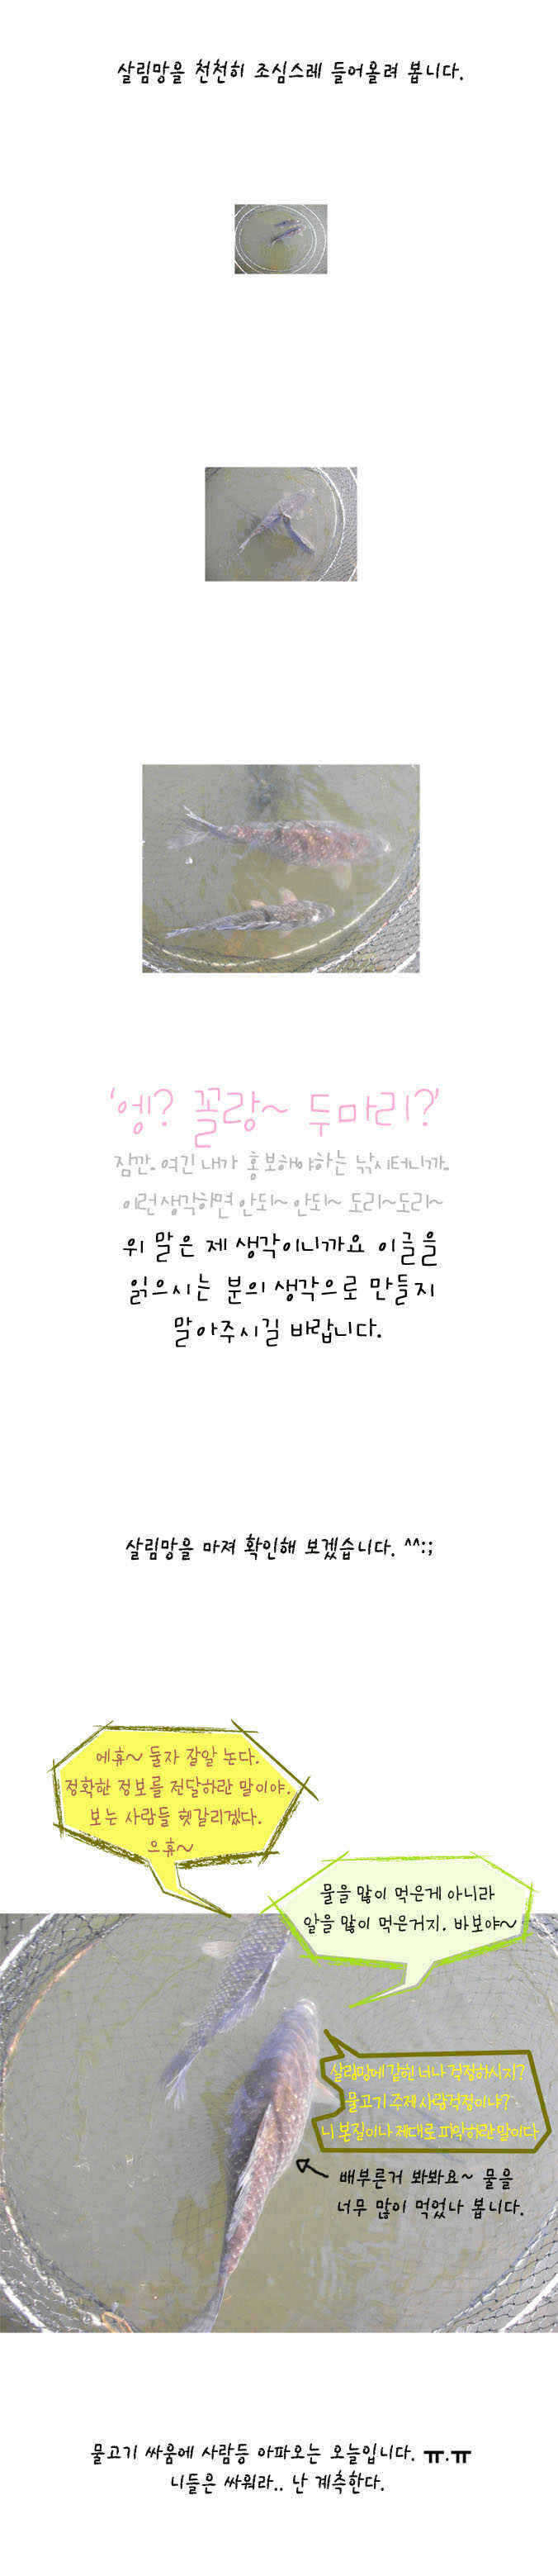 살림망을 천천히 조심스레 들어올려 봅니다.
'엥? 꼴랑~ 두마리?'
잠깐. 여긴 내가 홍보해야하는 낚시터니까.
이런생각하면 안되~ 안되~ 도리~도리~
위 말은 제 생각이니까요 이글을
읽으시는 분의 생각으로 만들지
말아주시길 바랍니다.
살림망을 마져 확인해 보겠습니다. ^^:;
에휴~ 둘자 잘알 논다.
정확한 정보를 전달하란 말이야.
보는 사람들 헷갈리겠다.
으휴~
물을 많이 먹은게 아니라
알을 많이 먹은거지. 바보야~
살림망에 갇힌 너나 걱정하시지?
물고기 주제 사람걱정이냐?
니 본질이나 제대로 파악하란말이다
배부른거 봐봐요~ 물을
너무 많이 먹었나 봅니다.
물고기 싸움에 사람등 아파오는 오늘입니다. ㅠ.ㅠ
니들은 싸워라.. 난 계측한다.